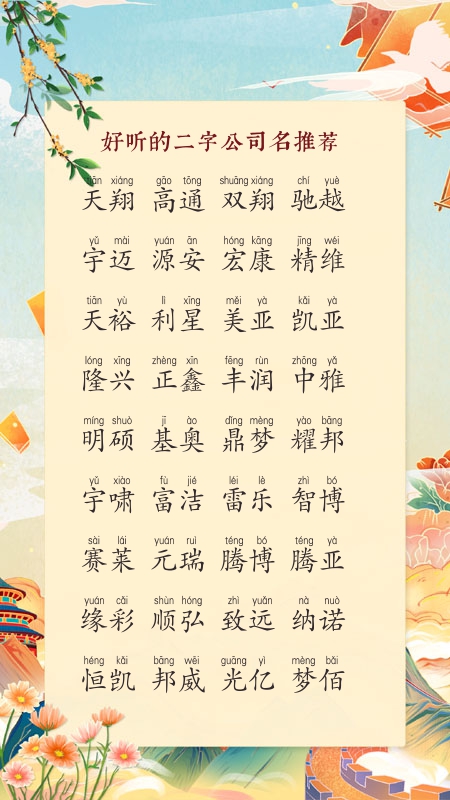 好听的二字公司名推荐
tiān xiáng gāo tōng shuāng xiáng chí yuè
天翔 高通 双翔 驰越
yǔ mài yuán ān hóng kāng jīng wéi
宇迈 源安 宏康 精维
tiān yù lì xīng měi yà kǎi yà
天裕 利星 美亚 凯亚
lóng xīng zhèng xīn fēng rùn zhōng yǎ
隆兴 正鑫 丰润 中雅
míng shuò jī ào dǐng mèng yào bāng
明硕 基奥 鼎梦 耀邦
yǔ xiào fù jié léi lè zhì bó
宇啸 富洁 雷乐 智博
sài lái yuán ruì téng bó téng yà
赛莱 元瑞 腾博 腾亚
yuán cǎi shùn hóng zhì yuǎn nà nuò
缘彩 顺弘 致远 纳诺
héng kǎi bāng wēi guāng yì mèng bǎi
恒凯 邦威 光亿 梦佰